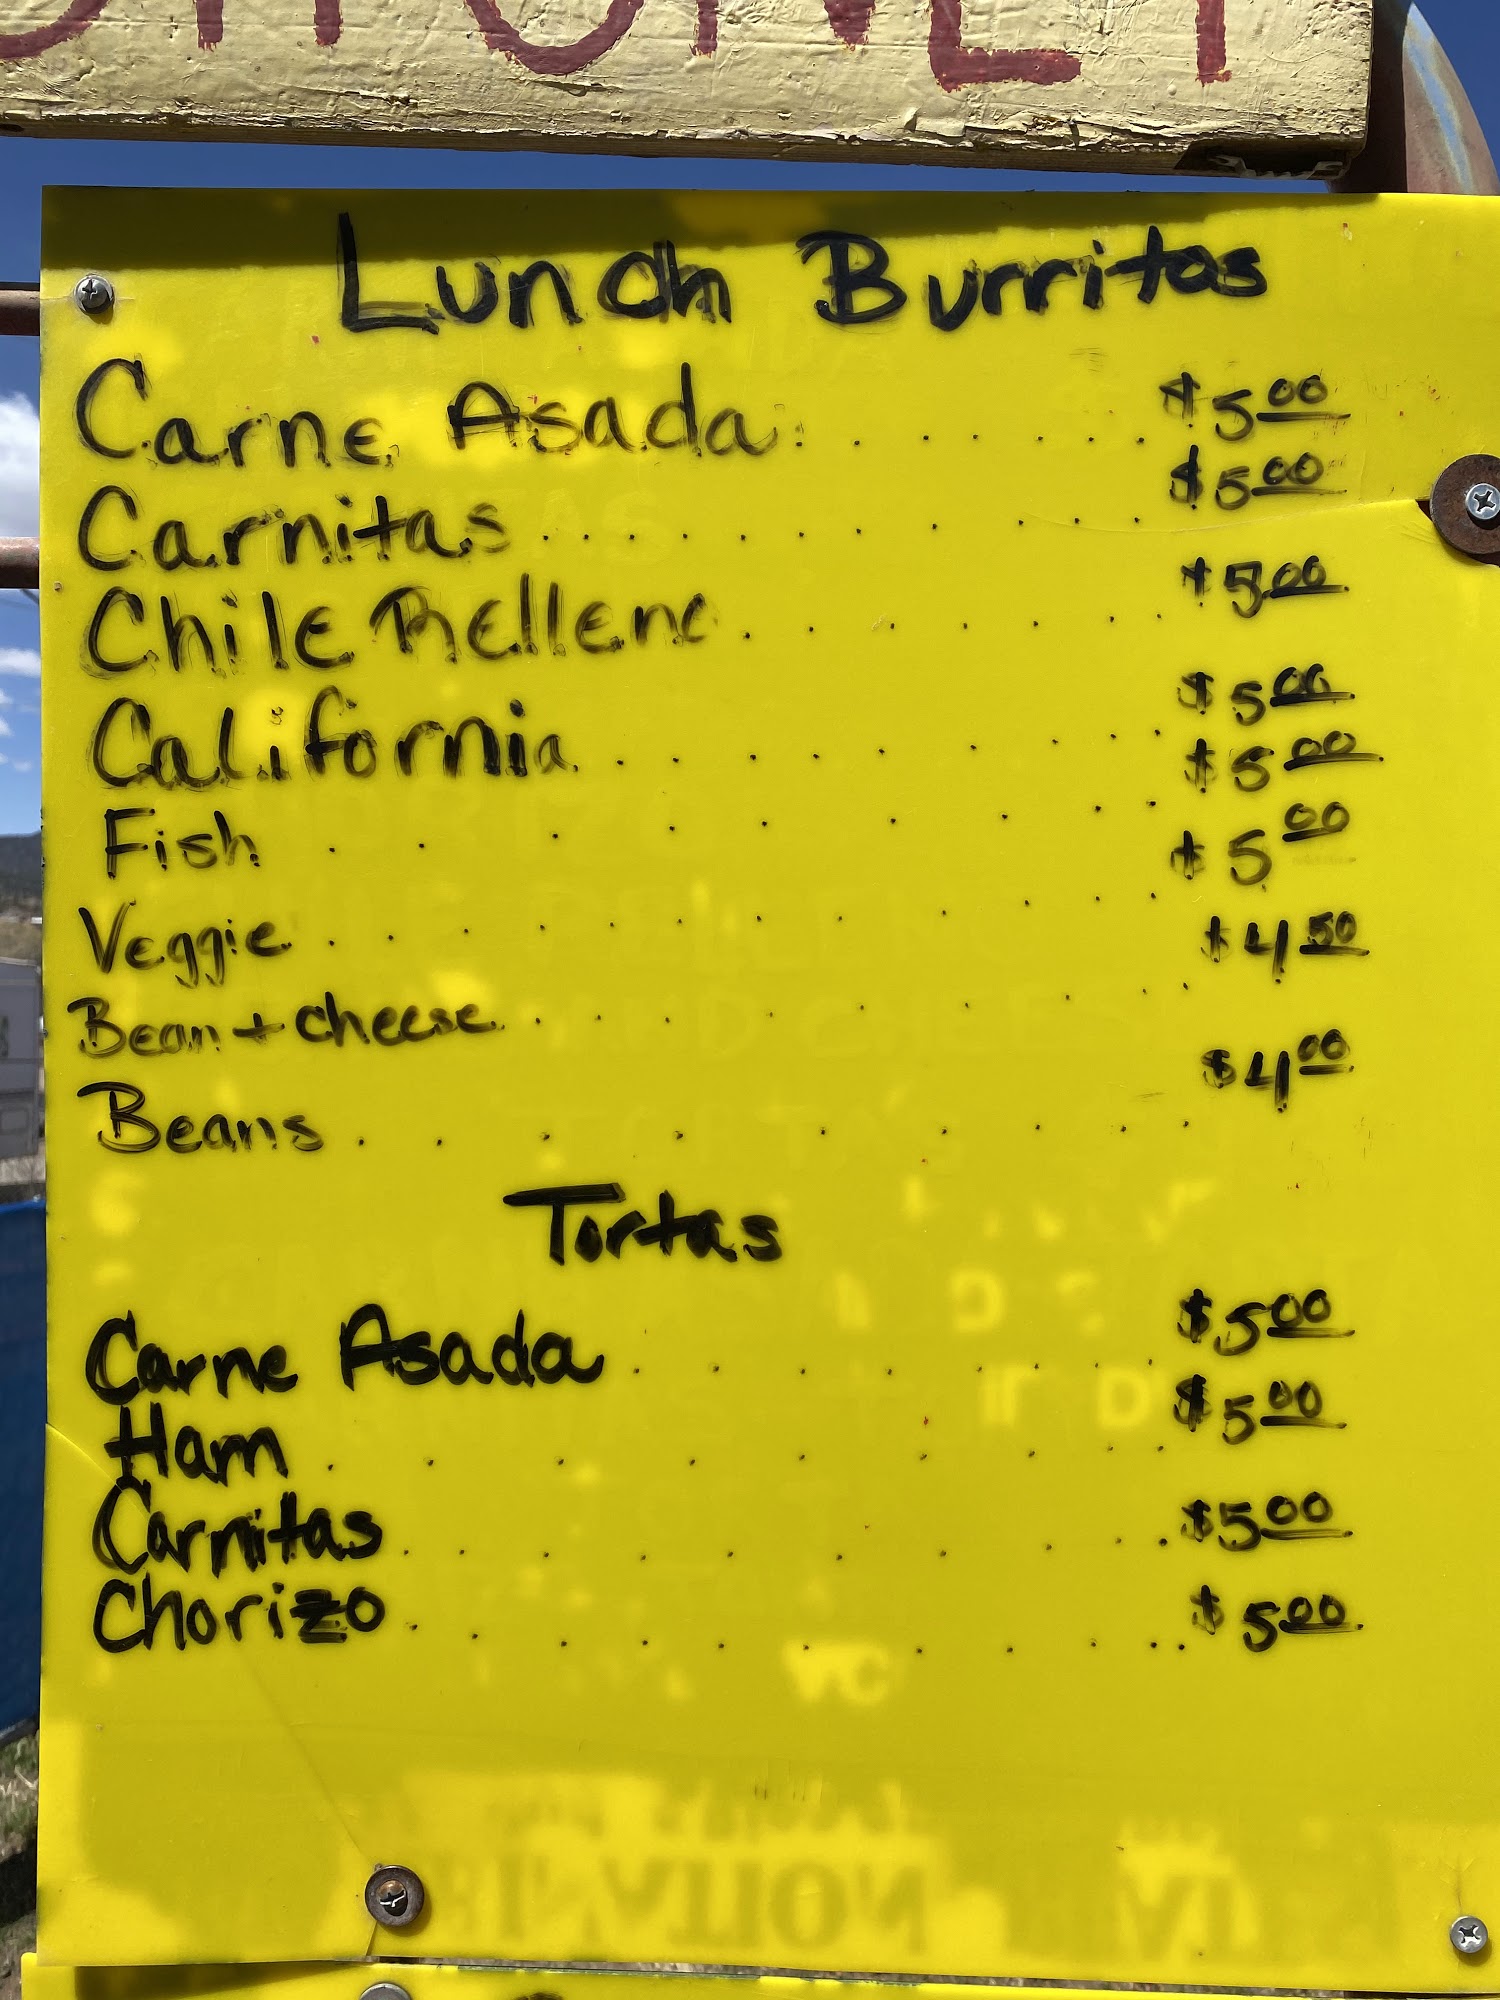 Lunch Burritos
Carne Asada. . . . . . $5.00
Carnitas . . . . . . . . . $5.00
Chile Rellene . . . . . . . $5.00
California . . . . . . . . $5.00
Fish . . . . . . . . . $5.00
Veggie . . . . . . . . . . $5.00
Bean + cheese . . . . . . . . $4.50
Beans . . . . . . . . . $4.00
Tortas
Carne Asada . . . . . . . . $5.00
Ham . . . . . . . . $5.00
Carnitas . . . . . . . . . . $5.00
Chorizo . . . . . . . . . . $5.00